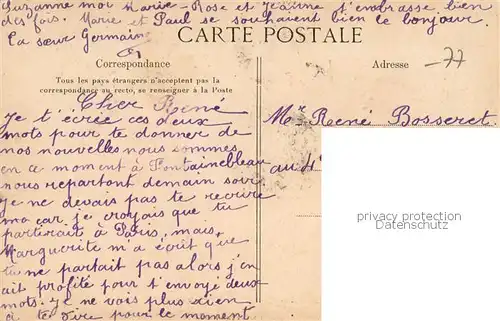 Suzanne moi Marie-Rose et Jeanne t'embrasse bien
des fois. Marie et Paul se souhaivent bien le bonjour.
La sœur Germaine
CARTE POSTALE
Correspondance
Adresse
77
Tous les pays étrangers n'acceptent pas la
correspondance au recto, se renseigner à la Poste
Cher René
Je t'écrée ces deux
mots pour te donner de
nos nouvelles nous sommes
en ce moment à Fontainebleau
nous repartont demain soir.
Je ne devais pas te recrire
ma car je croyais que tu
partirait à Paris, mais
Marguerite m'a écrit que
tu ne partait pas alors j'en
ait profité pour t'envoyé deux
mots. Je ne vois plus rien
à te dire pour le moment
Mr René Bosseret
au 4
privacy protection
Datenschutz